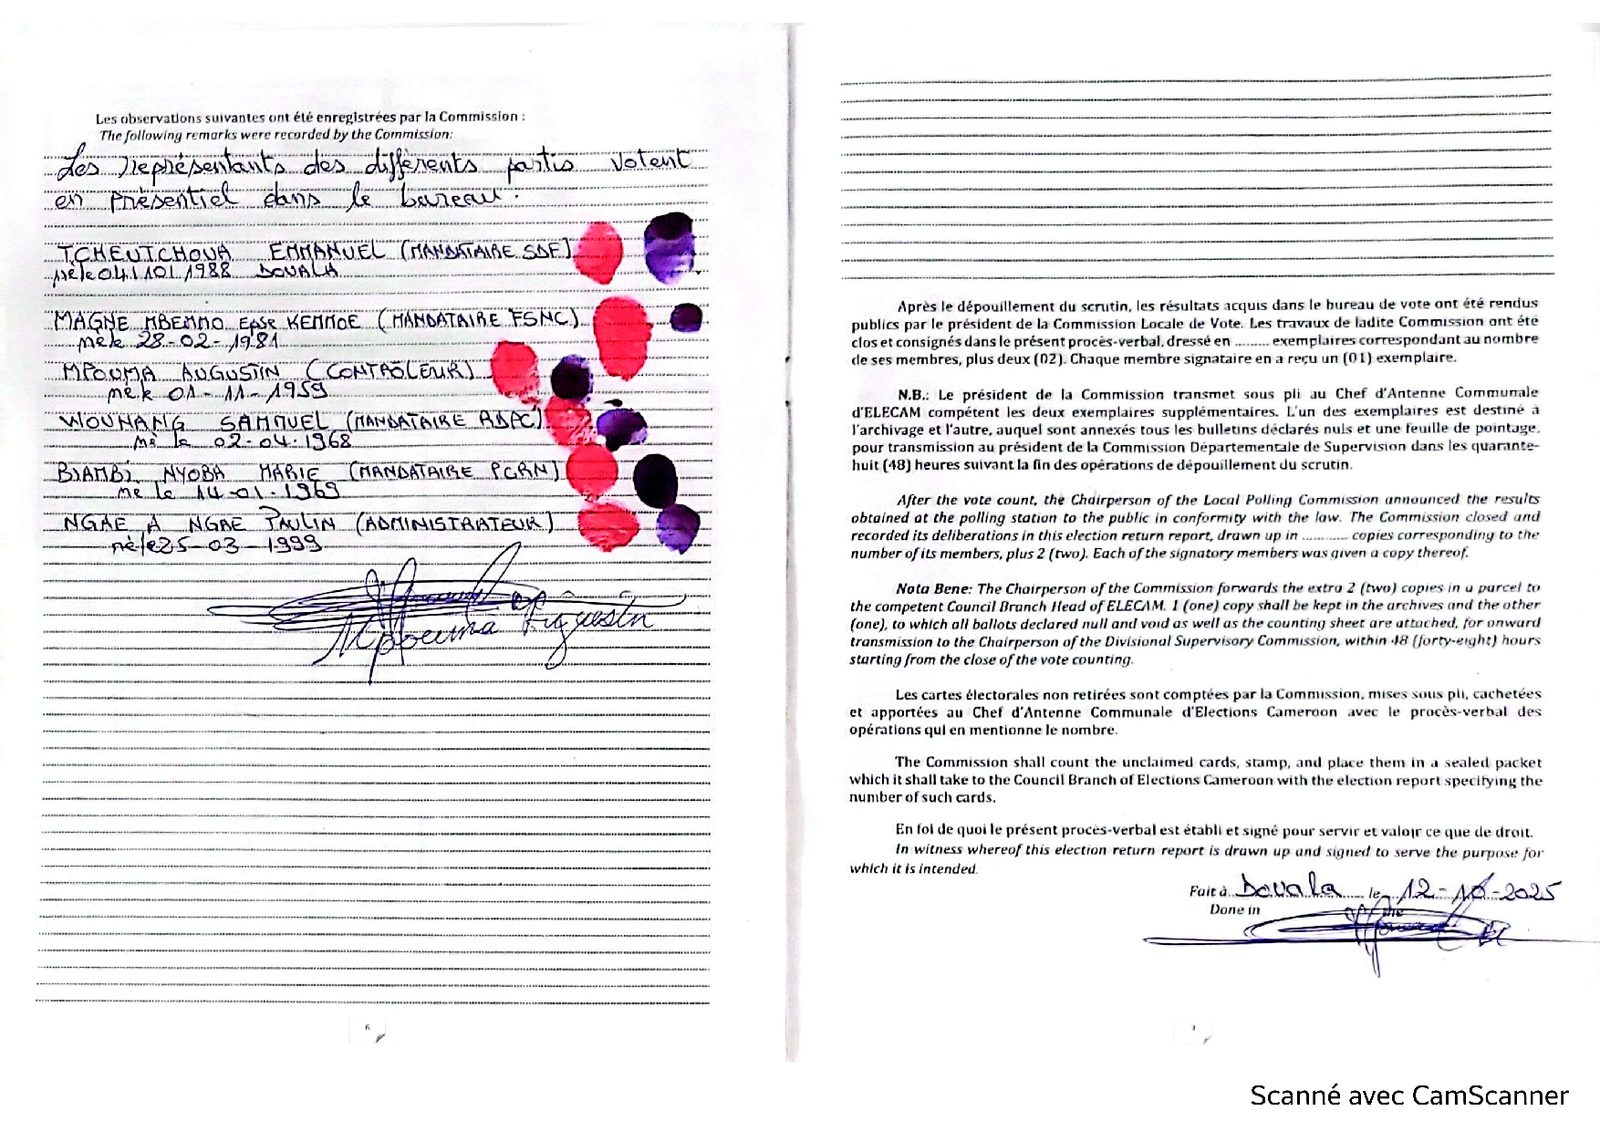 Les observations suivantes ont été enregistrées par la Commission :
The following remarks were recorded by the Commission:
Les représentants des différents partis votent
en présentiel dans le bureau.
TCHEUTCHOUA EMMANUEL (MANDATAIRE SDF)
né le 04/01/1988 DOUALA
MAGNE MBEMMO Epse KEMMOE (MANDATAIRE FSNC)
née le 28-02-1981
MPOUMA AUGUSTIN (CONTRÔLEUR)
né le 01-11-1959
WOUNANG SAMUEL (MANDATAIRE RDPC)
né le 02-04-1968
BIAMBI NYOBA MARIE (MANDATAIRE PCRN)
née le 14-01-1969
NGAE A NGAE PAULIN (ADMINISTRATEUR)
né le 25-03-1999
Mpouma Augustin
6
Après le dépouillement du scrutin, les résultats acquis dans le bureau de vote ont été rendus
publics par le président de la Commission Locale de Vote. Les travaux de ladite Commission ont été
clos et consignés dans le présent procès-verbal, dressé en .......... exemplaires correspondant au nombre
de ses membres, plus deux (02). Chaque membre signataire en a reçu un (01) exemplaire.
N.B.: Le président de la Commission transmet sous pli au Chef d'Antenne Communale
d'ELECAM compétent les deux exemplaires supplémentaires. L'un des exemplaires est destiné à
l'archivage et l'autre, auquel sont annexés tous les bulletins déclarés nuls et une feuille de pointage,
pour transmission au président de la Commission Départementale de Supervision dans les quarante-
huit (48) heures suivant la fin des opérations de dépouillement du scrutin.
After the vote count, the Chairperson of the Local Polling Commission announced the results
obtained at the polling station to the public in conformity with the law. The Commission closed and
recorded its deliberations in this election return report, drawn up in ............ copies corresponding to the
number of its members, plus 2 (two). Each of the signatory members was given a copy thereof.
Nota Bene: The Chairperson of the Commission forwards the extra 2 (two) copies in a parcel to
the competent Council Branch Head of ELECAM. 1 (one) copy shall be kept in the archives and the other
(one), to which all ballots declared null and void as well as the counting sheet are attached, for onward
transmission to the Chairperson of the Divisional Supervisory Commission, within 48 (forty-eight) hours
starting from the close of the vote counting.
Les cartes électorales non retirées sont comptées par la Commission, mises sous pli, cachetées
et apportées au Chef d'Antenne Communale d'Elections Cameroon avec le procès-verbal des
opérations qui en mentionne le nombre.
The Commission shall count the unclaimed cards, stamp, and place them in a sealed packet
which it shall take to the Council Branch of Elections Cameroon with the election report specifying the
number of such cards.
En foi de quoi le présent procès-verbal est établi et signé pour servir et valoir ce que de droit.
In witness whereof this election return report is drawn up and signed to serve the purpose for
which it is intended.
Fait à Douala le 12-10-2025
Done in the
7
Scanné avec CamScanner